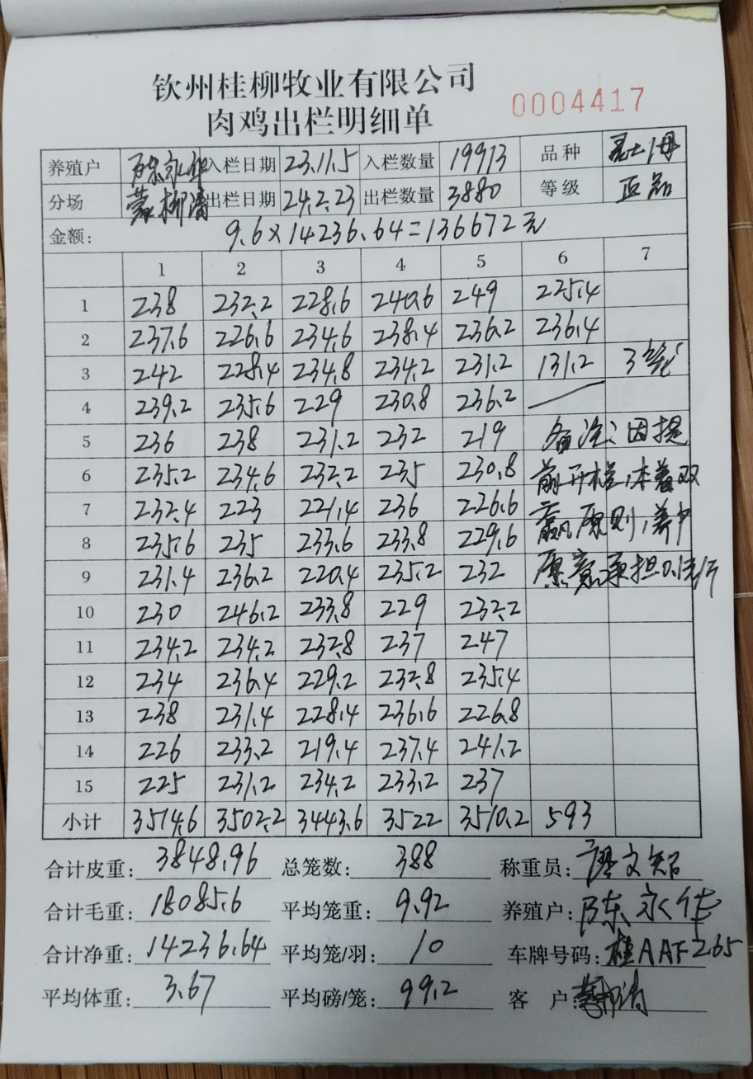 钦州桂柳牧业有限公司
肉鸡出栏明细单
0004417
养殖户 陈永华 入栏日期 23.11.5 入栏数量 19913 品种
分场 蒙柳清 出栏日期 24.2.23 出栏数量 3880 等级 正品
金额: 9.6×14236.64=136672元
1 2 3 4 5 6 7
1 238 232.2 228.6 240.6 249 225.4
2 237.6 226.6 234.6 238.4 236.2 236.4
3 242 228.4 234.8 234.2 231.2 131.2 3笼
4 239.2 235.6 229 230.8 236.2
5 236 238 231.2 232 219 备注:因提
6 235.2 234.6 232.2 235 230.8 前开栏,本着双
7 232.4 223 221.4 236 226.6 赢原则,养户
8 235.6 235 233.6 233.8 229.6 愿意承担0.1元/斤
9 231.4 236.2 220.4 235.2 232
10 230 246.2 233.8 229 232.2
11 234.2 234.2 232.8 237 247
12 234 236.4 229.2 232.8 235.4
13 238 231.4 228.4 236.6 226.8
14 226 233.2 219.4 237.4 241.2
15 225 231.2 234.2 233.2 237
小计 3514.6 3502.2 3443.6 3522 3510.2 593
合计皮重: 3848.96 总笼数: 388 称重员:
合计毛重: 18085.6 平均笼重: 9.92 养殖户: 陈永华
合计净重: 14236.64 平均笼/羽: 10 车牌号码: 桂AAF265
平均体重: 3.67 平均磅/笼: 99.2 客 户: 蒙柳清